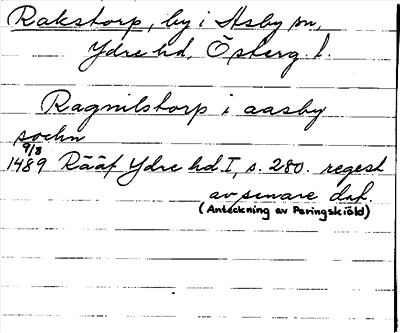 Rakstorp, by i Asby sn,
Ydre hd, Österg. l.
Ragnilstorp i aasby
sochn
9/8
1489 Rääf Ydre hd I, s. 280. regest
av senare dat.
(Anteckning av Peringskiöld)